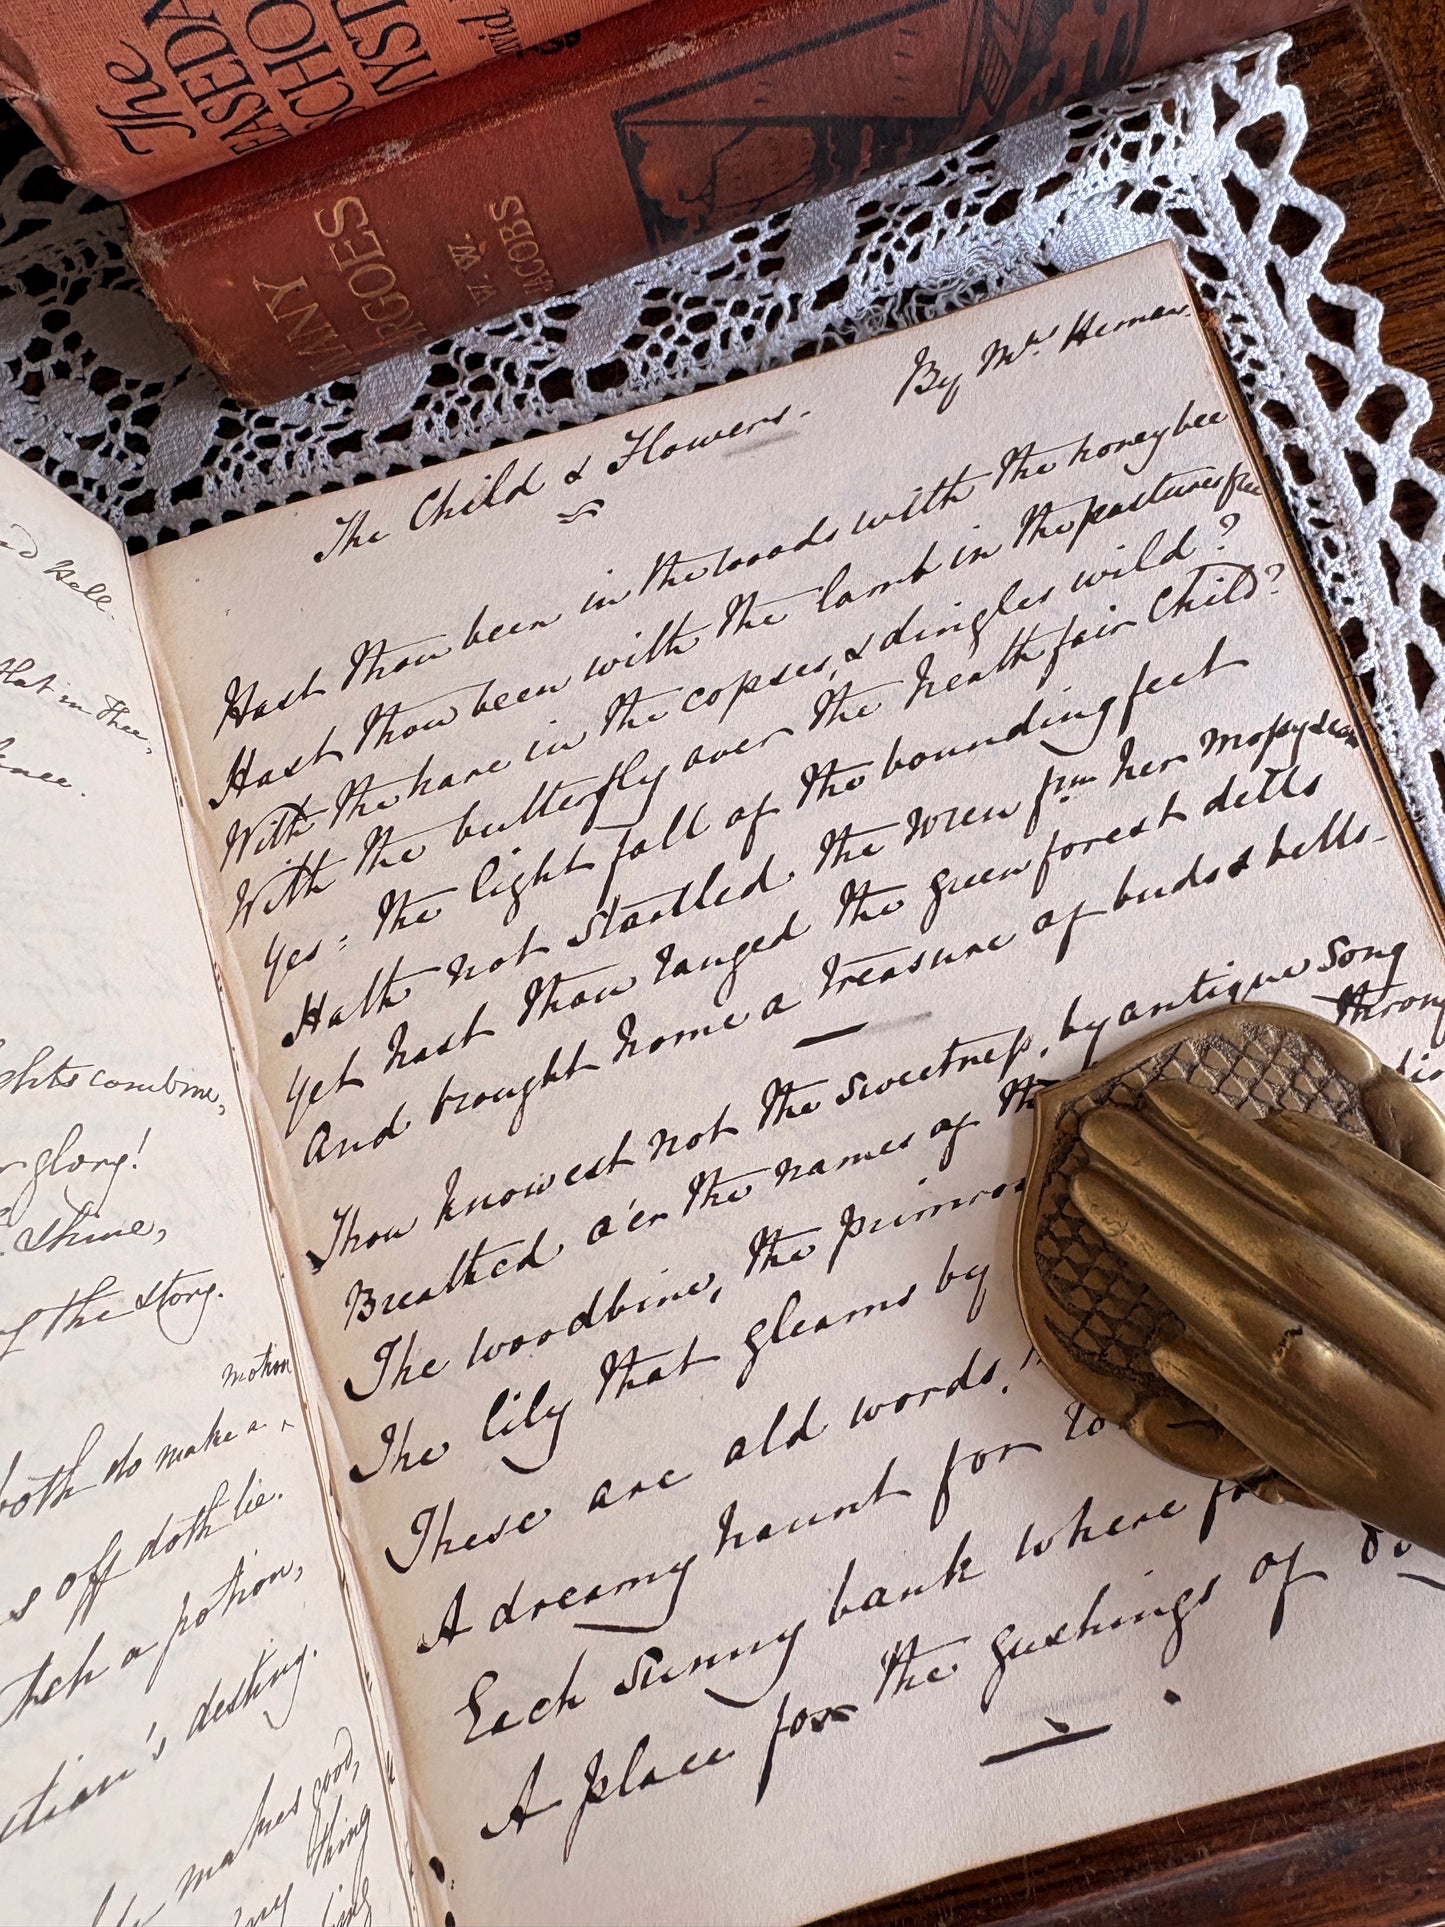 The
EASED
SCHO
MYST
MANY
CARGOES
W. W.
JACOBS
The Child & Flowers.
By Mrs Heman
Hast thou been in the woods with the honey bee
Hast thou been with the lamb in the pastures free
With the hare in the copses, & dingles wild?
With the butterfly over the heath fair Child?
Yes: the light fall of the bounding feet
Hath not startled the wren frm her mossy seat
Yet hast thou ranged the green forest dells
And brought home a treasure of buds & bells.
Thou knowest not the sweetness, by antique song
Breathed o'er the names of th throng
The woodbine, the primros
The lily that gleams by
These are old words,
A dreamy haunt for
Each sunny bank where
A place for the gushings of
nd Hell.
that in thee,
ghts combine,
r glory!
shine,
of the story.
motion
both do make a ^
s off doth lie.
such a potion,
ction's destiny.
makes good,
thing